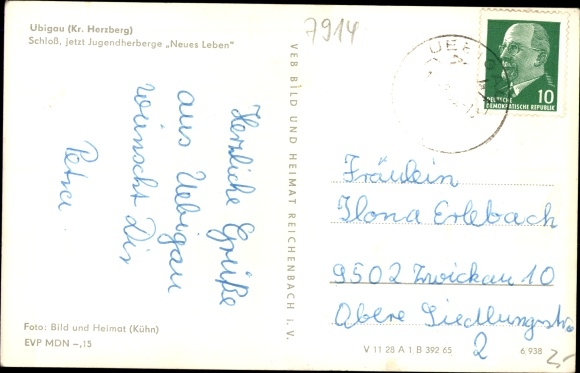 Uebigau (Kr. Herzberg)
Schloß, jetzt Jugendherberge „Neues Leben"
7914
Herzliche Grüße
aus Uebigau
wünscht Dir
Petra.
Foto: Bild und Heimat (Kühn)
EVP MDN –,15
VEB BILD UND HEIMAT REICHENBACH i. V.
10
DEUTSCHE
DEMOKRATISCHE REPUBLIK
Fräulein
Ilona Erlebach
9502 Zwickau 10
Obere Siedlungsstr.
2
V 11 28 A 1 B 392 65
6,938
2,-